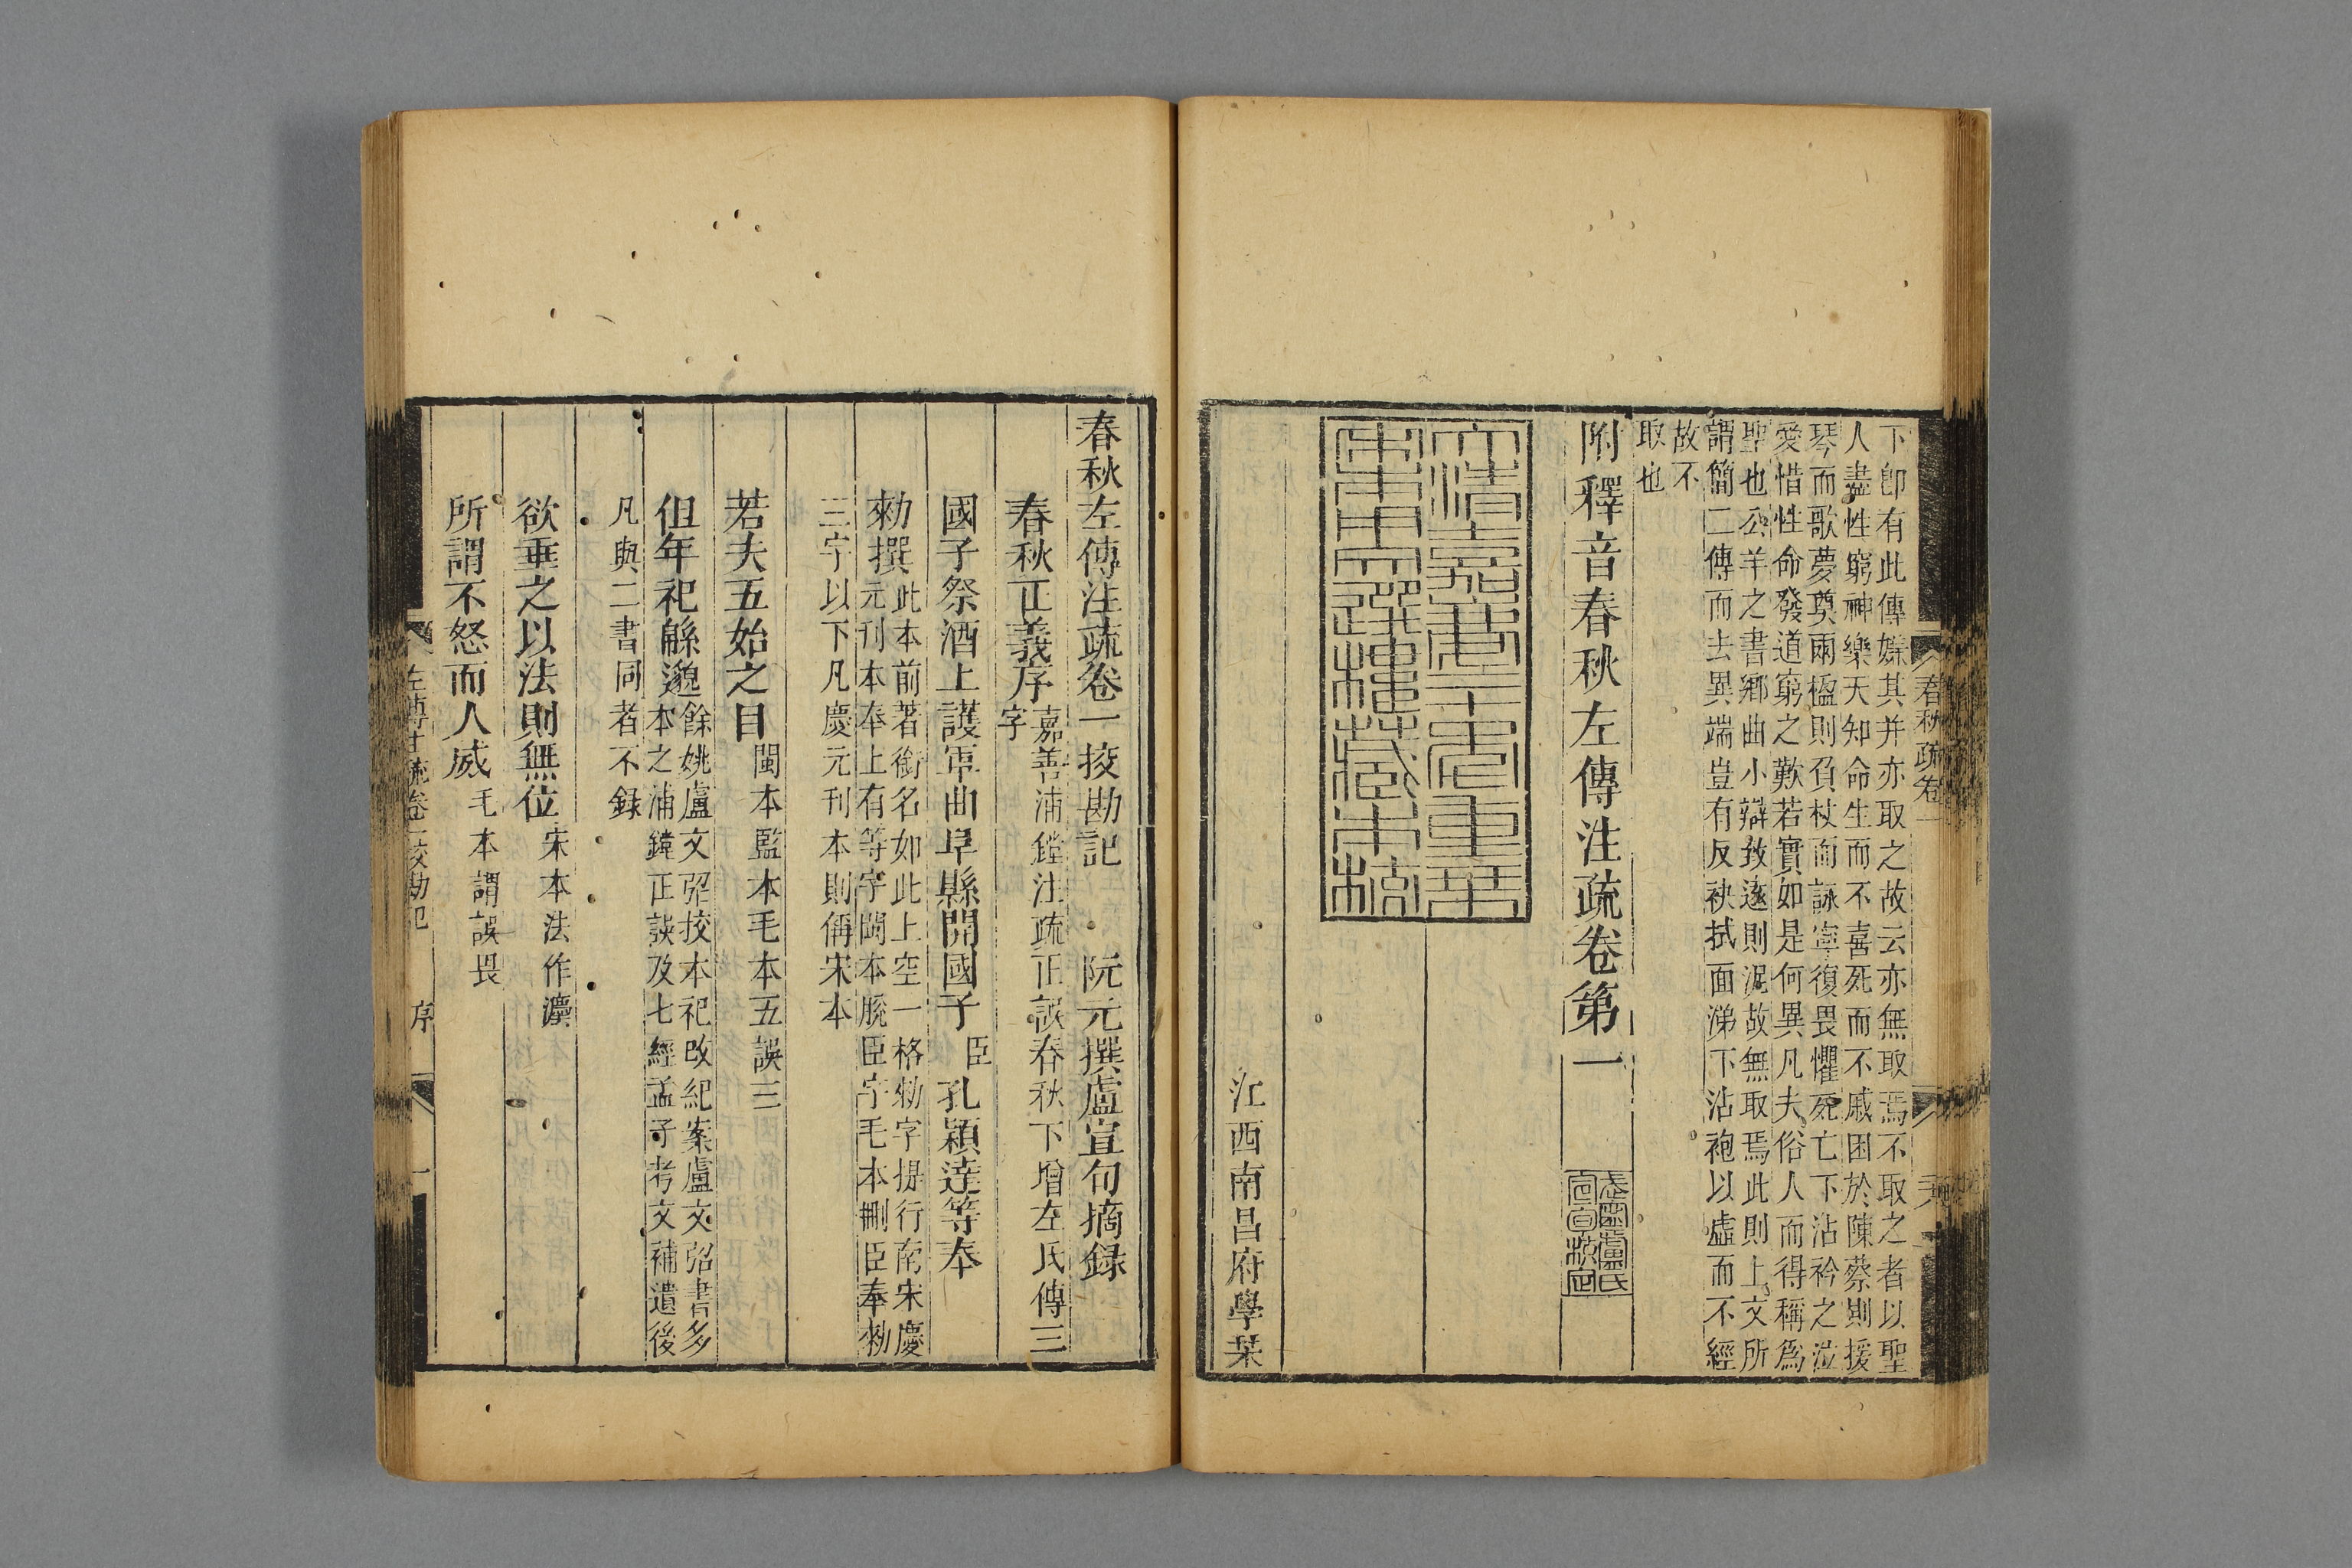 下卽有此傳媒其并亦取之故云亦無取焉不取之者以聖
人盡性窮神樂天知命生而不喜死而不戚困於陳蔡則援
琴而歌夢奠兩楹則負杖而詠寧復畏懼死亡下沾衿之泣
愛惜性命發道窮之歎若實如是何異凡夫俗人而得稱爲
聖也公羊之書鄉曲小辯致遠則泥故無取焉此則上文所
謂簡二傳而去異端豈有反袂拭面涕下沾袍以虛而不經
故不
取也
附釋音春秋左傳注疏卷第一
大清嘉慶二十年重栞
宋本文選樓藏本
江西南昌府學栞
春秋疏卷一
春秋左傳注疏卷一挍勘記 阮元撰盧宣旬摘録
春秋正義序嘉善浦鏜注疏正誤春秋下增左氏傳三
字
國子祭酒上護軍曲阜縣開國子臣孔穎達等奉
勑撰此本前著銜名如此上空一格勑字提行南宋慶
元刊本奉上有等字閩本脫臣字毛本刪臣奉勑
三字以下凡慶元刊本則稱宋本
若夫五始之目閩本監本毛本五誤三
但年祀緜邈餘姚盧文弨挍本祀改紀案盧文弨書多
本之浦鏜正誤及七經孟子考文補遺後
凡與二書同者不録
欲垂之以法則無位宋本法作灋
所謂不怒而人威毛本謂誤畏
左傳注疏卷一挍勘記 序 一